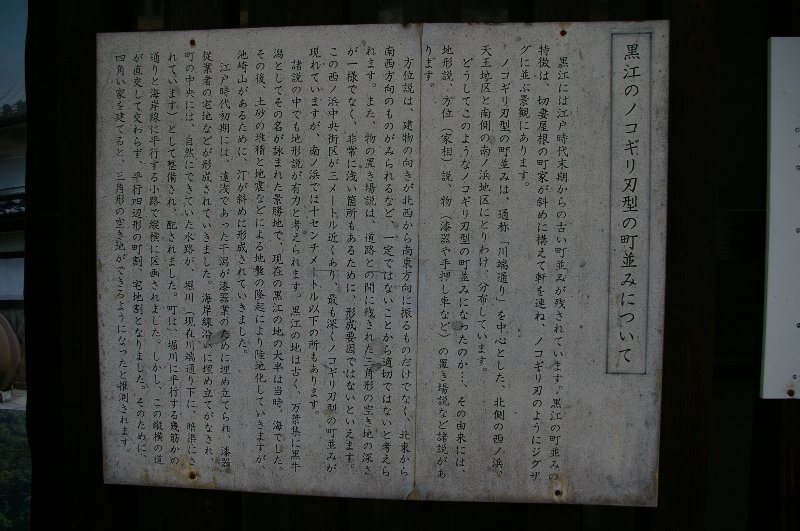 黒江のノコギリ刃型の町並みについて
黒江には江戸時代末期からの古い町並みが残されています。黒江の町並みの
特徴は、切妻屋根の町家が斜めに構えて軒を連ね、ノコギリ刃のようにジグザ
グに並ぶ景観にあります。
ノコギリ刃型の町並みは、通称「川端通り」を中心とした、北側の西ノ浜、
天王地区と南側の南ノ浜地区にとりわけ、分布しています。
どうしてこのようなノコギリ刃型の町並みになったのか…、その由来には、
地形説、方位（家相）説、物（漆器や手押し車など）の置き場説など諸説があ
ります。
方位説は、建物の向きが北西から南東方向に振るものだけでなく、北東から
南西方向のものがみられるなど、一定ではないことから適切ではないと考えら
れます。また、物の置き場説は、道路との間に残された三角形の空き地の深さ
が一様でなく、非常に浅い箇所もあるために、形成要因ではないといえます。
この西ノ浜中央街区が三メートル近くあり、最も深くノコギリ刃型の町並みが
現れていますが、南ノ浜では十センチメートル以下の所もあります。
諸説の中でも地形説が有力と考えられます。黒江の地は古く、万葉集に黒牛
潟としてその名が詠まれた景勝地で、現在の黒江の地の大半は当時、海でした。
その後、土砂の堆積と地震などによる地盤の隆起により陸地化していきますが、
池崎山があるために、汀が斜めに形成されていきました。
江戸時代初期には、遠浅であった干潟が漆器業のために埋め立てられ、漆器
従業者の宅地などが形成されていきました。海岸線沿いに埋め立てがなされ、
町の中央には、自然にできていた水路が、堀川（現在川端通り下に、暗渠にさ
れています）として整備され、配されました。町は、堀川に平行する幾筋かの
通りと海岸線に平行する小路で縦横に区画されました。しかし、この縦横の道
が直交して交わらず、平行四辺形の町割、宅地割となりました。そのために、
四角い家を建てると、三角形の空き地ができるようになったと推測されます。